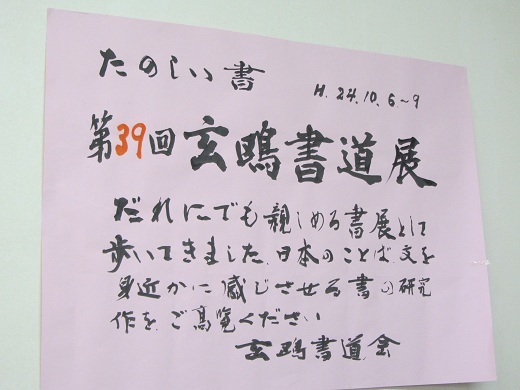 たのしい書
H.24.10.6~9
第39回玄鴎書道展
だれにでも親しめる書展として
歩いてきました.日本のことば.文を
身近かに感じさせる書の研究
作を.ご高覧ください
玄鴎書道会